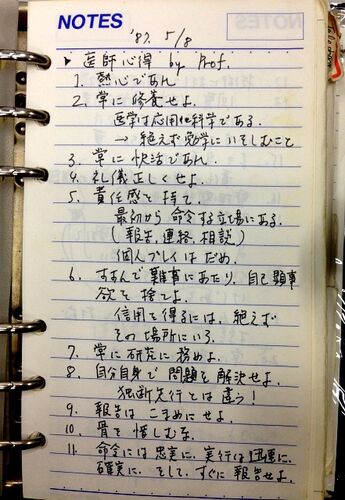 NOTES
'87. 5/8
▸ 医師心得 by Prof.
1. 熱心であれ
2. 常に修養せよ.
医学は応用科学である.
→ 絶えず勉学にいそしむこと
3. 常に快活であれ.
4. 礼儀正しくせよ.
5. 責任感を持て.
最初から命令する立場にある.
(報告, 連絡, 相談)
個人プレイはだめ.
6. すすんで難事にあたり, 自己顕事
欲を捨てよ.
信用を得るには, 絶えず
その場所にいろ.
7. 常に研究に務めよ.
8. 自分自身で問題を解決せよ.
独断先行とは違う!
9. 報告はこまめにせよ.
10. 骨を惜しむな.
11. 命令には忠実に. 実行は迅速に.
確実に. そして, すぐに報告せよ.